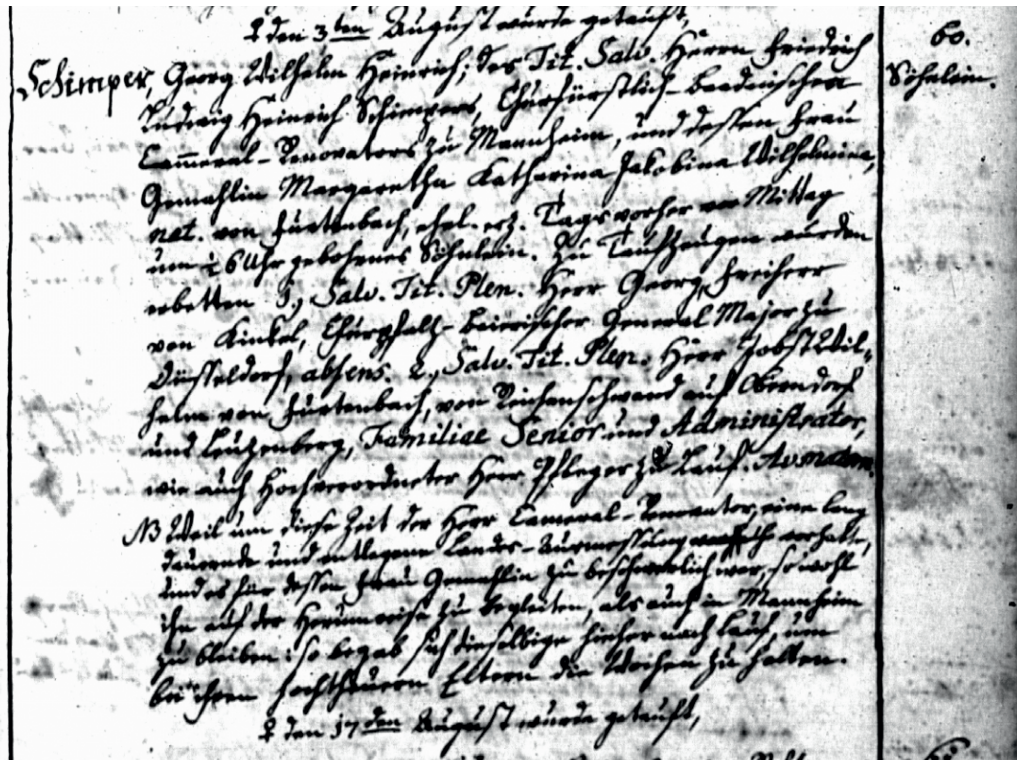 ♀ den 3ten August wurde getauft,
60.
Schimper, Georg Wilhelm Heinrich; des Tit. Salv. Herrn Friedrich
Söhnlein.
Ludwig Heinrich Schimpers, Churfürstlich-baadnischen
Cam̄eral-Renovators zu Mannheim, und dessen Frau
Gemahlin Margaretha Katharina Jakobina Wilhelmina,
nat. von Furtenbach, ehel. erz. Tags vorher vor Mittag
um 6 Uhr gebohrnes Söhnlein. Zu Taufzeugen wurden
erbetten 1., Salv. Tit. Plen. Herr Georg, Freiherr
von Kinkel, Churpfalz-baierischer General Major zu
Düsseldorf, absens. 2., Salv. Tit. Plen. Herr Jobst Wil-
helm von Furtenbach, von Reichenschwand auf Oberndorf
und Leuzenberg, Familiae Senior und Administrator,
wie auch Hochverordneter Herr Pfleger zu Lauf.
NB Weil um diese Zeit der Herr Cameral-Renovator, eine lang
dauernde und entlegene Landes-Ausmessung vorhatte,
und es für dessen Frau Gemahlin zu beschwerlich war, sowohl
ihn auf der Herumreise zu begleiten, als auch in Mannheim
zu bleiben: so begab sich dieselbige hieher nach Lauf, um
bei ihren hochtheuern Eltern die Wochen zu halten.
♀ den 17den August wurde getauft,